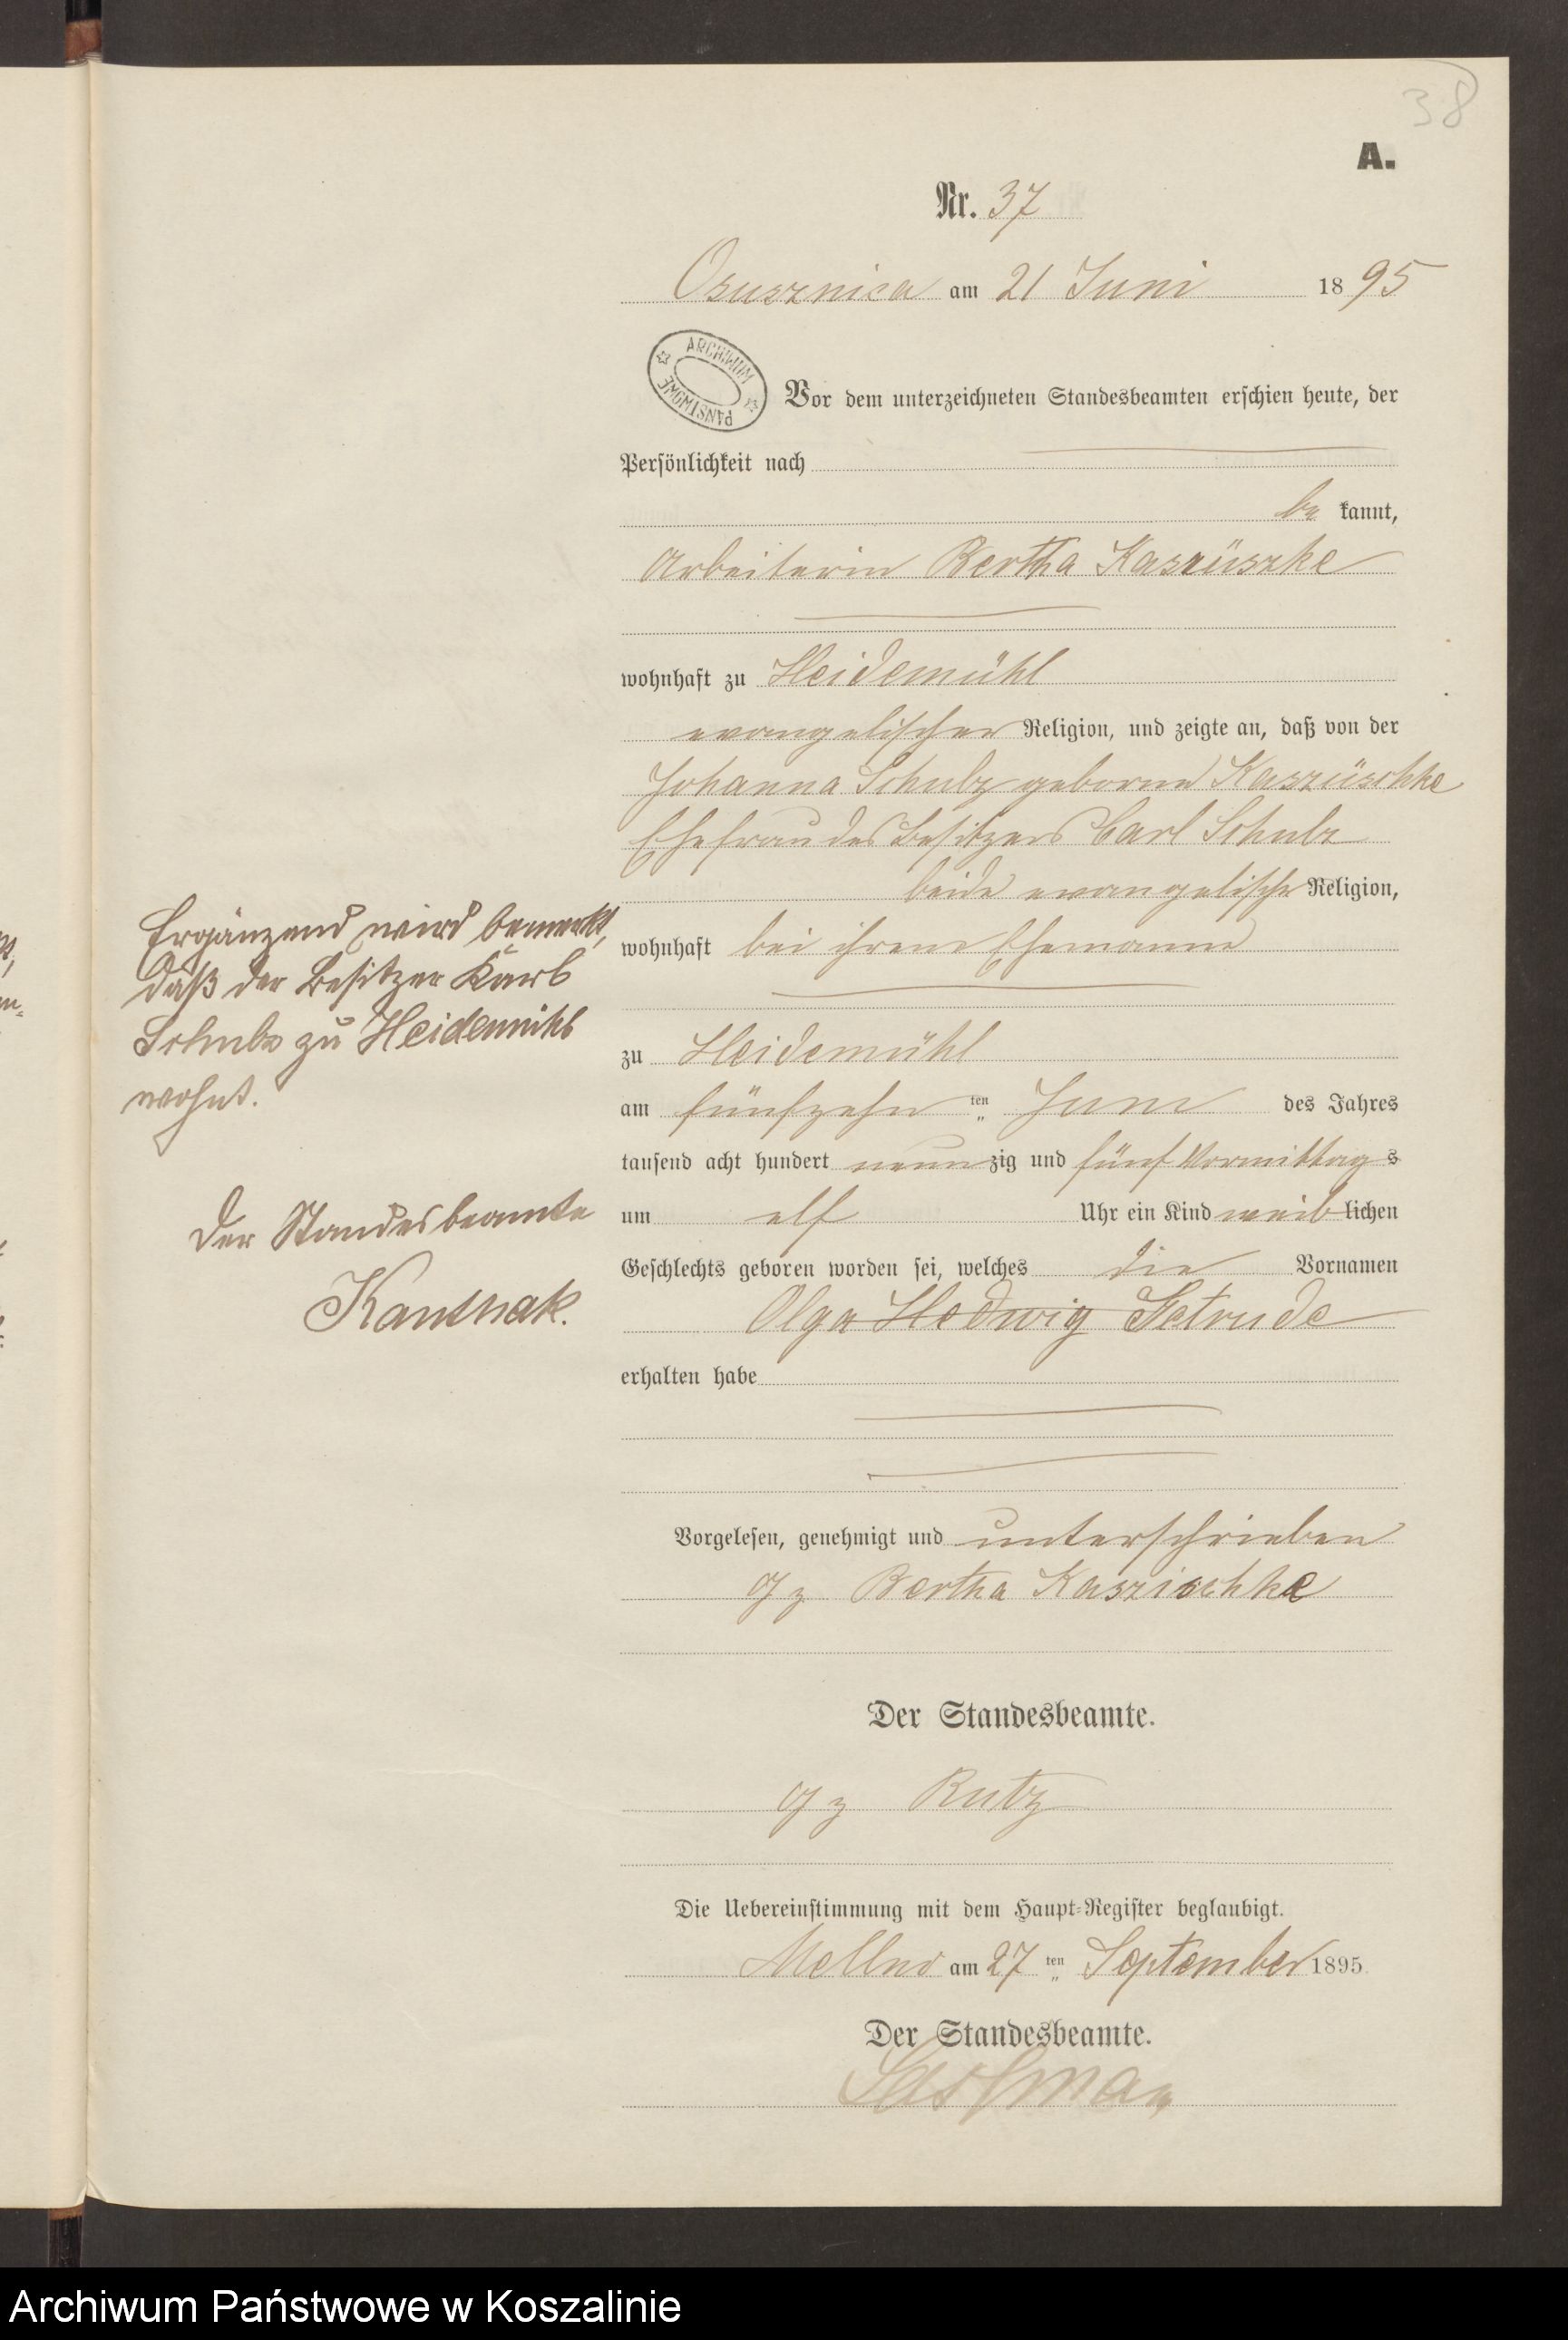 38
A.
Nr. 37
Osusznica am 21 Juni 1895
ARCHIWUM PAŃSTWOWE
Vor dem unterzeichneten Standesbeamten erschien heute, der
Persönlichkeit nach
be kannt,
Arbeiterin Bertha Kaszüszke
wohnhaft zu Heidemühl
evangelischer Religion, und zeigte an, daß von der
Johanna Schulz geborne Kaszüschke
Ehefrau des Besitzers Carl Schulz
beide evangelische Religion,
wohnhaft bei ihrem Ehemanne
zu Heidemühl
am fünfzehn ten Juni des Jahres
tausend acht hundert neunzig und fünf Vormittags
um elf Uhr ein Kind weiblichen
Geschlechts geboren worden sei, welches die Vornamen
Olga Hedwig Getrude
erhalten habe
Ergänzend wird bemerkt,
daß der Besitzer Karl
Schulz zu Heidemühl
wohnt.
Der Standesbeamte
Vorgelesen, genehmigt und unterschrieben
gz Bertha Kaszischke
Der Standesbeamte.
gz Rutz
Die Uebereinstimmung mit dem Haupt-Register beglaubigt.
Mellno am 27 ten September 1895.
Der Standesbeamte.
Archiwum Państwowe w Koszalinie